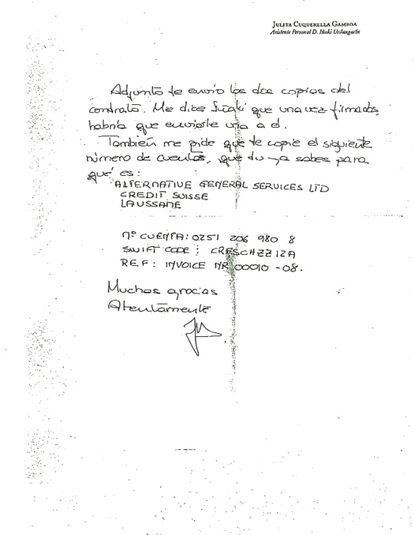 JULITA CUQUERELLA GAMBOA
Asistente Personal D. Iñaki Urdangarin
Adjunto te envío las dos copias del
contrato. Me dice Iñaki que una vez firmadas,
habría que enviarle una a él.
También me pide que te copie el siguiente
número de cuenta, que tu ya sabes para
qué es:
ALTERNATIVE GENERAL SERVICES LTD
CREDIT SUISSE
LAUSSANE
Nº CUENTA: 0251 206 980 8
SWIFT CODE: CRESCHZZ12A
REF: INVOICE NR 00010-08.
Muchas gracias
Atentamente